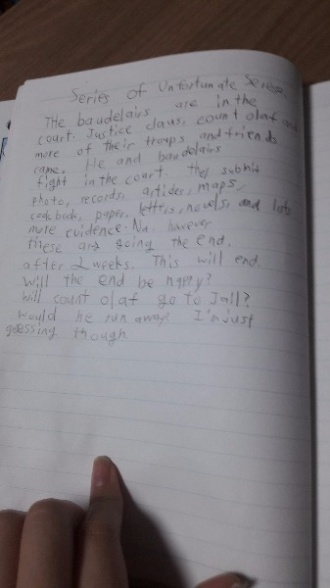 Series of Unfortunate Series
THe baudelairs are in the
court. Justice claus, count olaf and
more of their troops and friends
came. He and baudelairs
fight in the court. they submit
photo, records, articles, maps,
cook book, paper, letters, novels, and lots
more evidence. Na. however
these are going the end.
after 2 weeks. This will end.
Will the end be happy?
Will count olaf go to Jall?
would he run away I'm just
guessing though